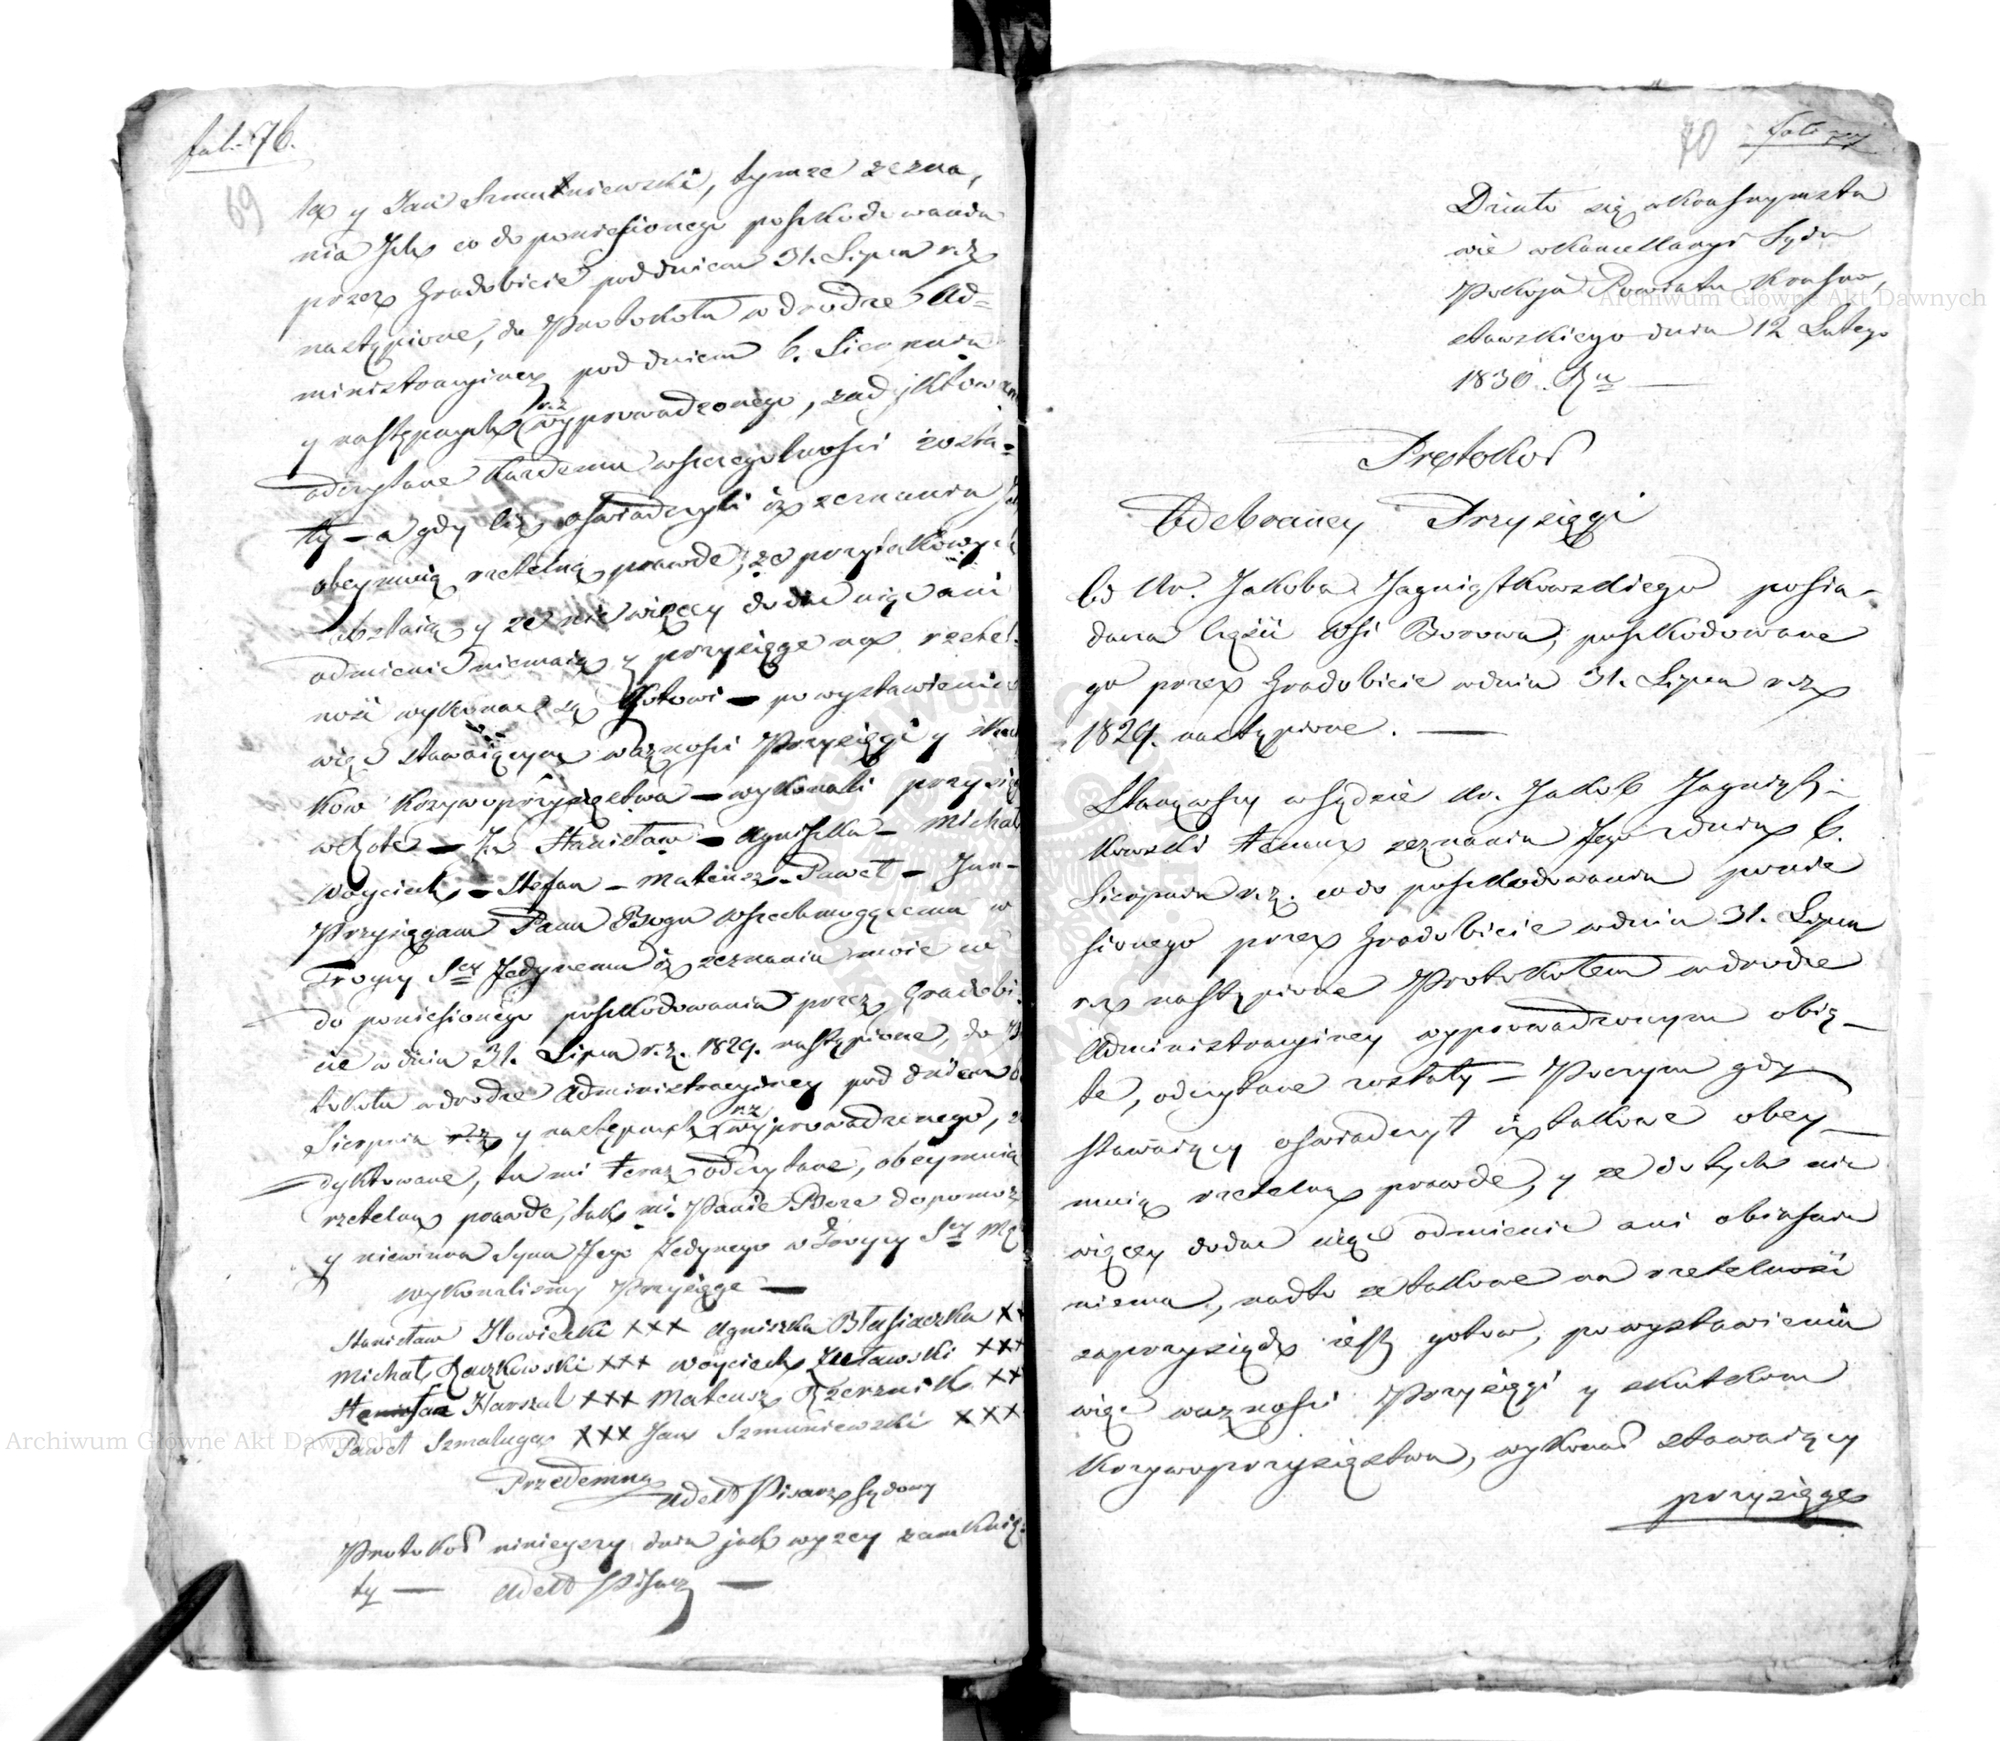 fol. 76.
69
y Jan Szmuniewski, tymże zezna,
nia Ich co do poniesionego poszkodowania
przez Gradobicie pod dniem 31. Lipca r.z.
nastąpione, do Protokołu w drodze Ad=
ministracyiney pod dniem 6. Sierpnia
r.z.
y następnych wyprowadzonego, zadyktowane
odczytane każdemu w szczególności zosta=
ły – a gdy ciż oświadczyli iż zeznania Ich
obeymuią rzetelną prawdę, że przy takowych
obstaią y że nic więcey dodać uiąć ani
odmienić niemaią y przysięgę na rzetel
ność wykonać są gotowi – po wystawieniu
więc stawaiącym ważności Przysięgi y skut
ków krzywoprzysięstwa – wykonali przysię
w rotę – Ja Stanisław – Agniszka – Michał
Woyciech – Stefan – Mateusz – Paweł – Jan –
Przysięgam Panu Bogu wszechmogącemu w
Troycy Scy Jedynemu iż zeznania moie co
do poniesionego poszkodowania przez Gradobi
cie w dniu 31. Lipca r.z. 1829. nastąpione, do
tokołu w drodze Administracyiney pod dniem 6
r.z
Sierpnia y następnych wyprowadzonego,
dyktowane, tu mi teraz odczytane, obeymuią
rzetelną prawdę, tak mi Panie Boże dopomoż
y niewinna Syna Jego Jedynego w Troycy Scy Mę
wykonaliśmy Przysięgę –
Stanisław Iłowiecki XXX Agniszka Błasiaczka XX
Michał Raczkowski XXX Woyciech Żuławski XXX
Harszul XXX Mateusz Rzeźnik XX
Paweł Szmaluga XXX Jan Szmuniewski XXX
Przedemną
Pisarz Sądowy
Protokoł ninieyszy dnia jak wyżey zamknię
ty — Pisarz —
70
fol. 77
Działo się w Krasnymsta
wie w Kancellaryi Sądu
Pokoju Powiatu Krasno,
stawskiego dnia 12 Lutego
1830. Ru —
Protokoł
Odebraney Przysięgi
Od Ur. Jakoba Jagniątkowskiego posia-
dacza części Wsi Borowa, poszkodowane
go przez Gradobicie w dniu 31. Lipca r.z.
1829. nastąpione. —
Stanąwszy w Sądzie Ur. Jakob Jagniąt-
kowski temuż zeznania Jego z dnia 6.
Sierpnia r.z. co do poszkodowania ponie
sionego przez Gradobicie w dniu 31. Lipca
r.z. nastąpione Protokołem w drodze
Administracyiney wyprowadzonym obię-
te, odczytane zostały – Poczym gdy
stawaiący oświadczył iż takowe obey-
muią rzetelną prawdę, y że do tych nic
więcey dodać uiąć odmienić ani obiaśnić
niema, nadto że takowe na rzetelność
zaprzysiądz iest gotow, po wystawieniu
więc ważności Przysięgi y skutkow
krzywoprzysięstwa, wykonał stawaiący
przysięgę